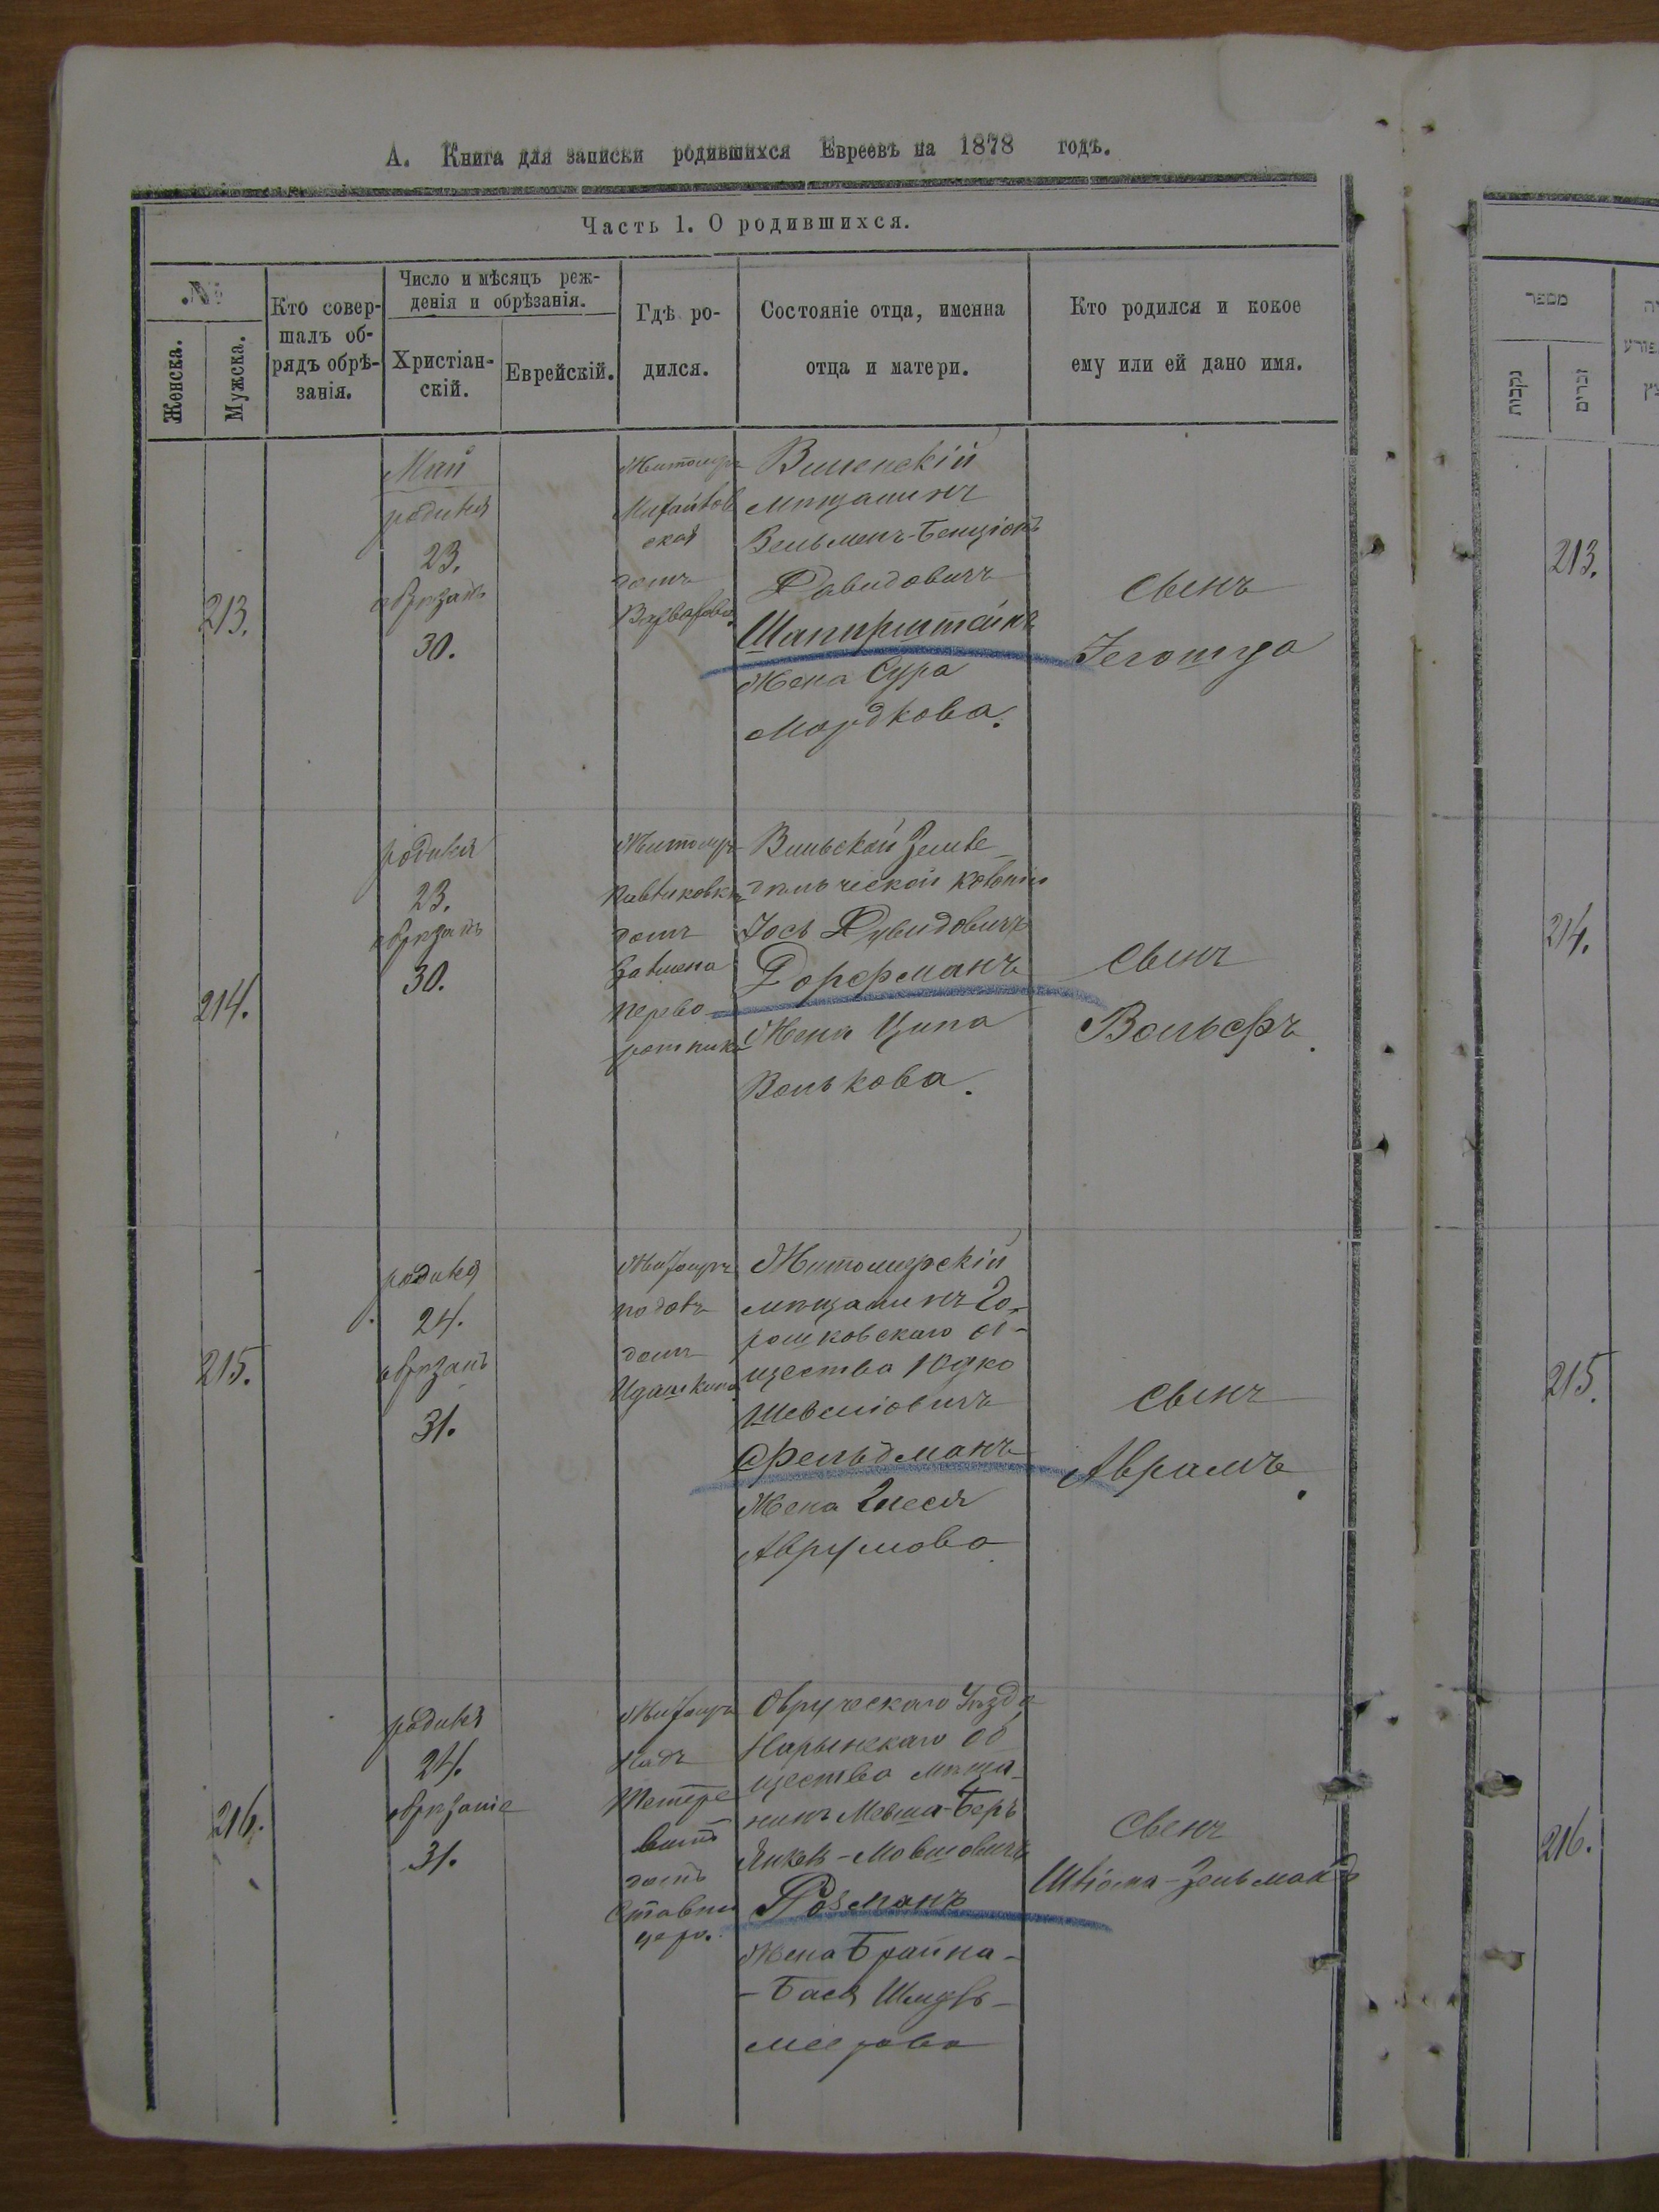 А. Книга для записки родившихся Евреевъ на 1878 годъ.
Часть 1. О родившихся.
№
Женска.
Мужска.
Кто совер-
шалъ об-
рядъ обрѣ-
занія.
Число и мѣсяцъ реж-
денія и обрѣзанія.
Христіан-
скій.
Еврейскій.
Гдѣ ро-
дился.
Состояніе отца, именна
отца и матери.
Кто родился и кокое
ему или ей дано имя.
213.
Май
родился
23.
обрѣзанъ
30.
Житомиръ
Михайлов
ская
домъ
Виленскій
мѣщанинъ
Зельменъ-Бенціонъ
Давидовичъ
Шапирштейнъ
Жена Сура
Мордкова.
сынъ
Іегошуа
214.
родился
23.
обрѣзанъ
30.
Житомиръ
Павликовка
домъ
Вильской Земле-
дѣльческой колоніи
Іось Дувидовичъ
Дорфманъ
Жена Ципа
Волькова.
сынъ
Вольфъ.
215.
родился
24.
обрѣзанъ
31.
Житомиръ
подолъ
домъ
Житомирскій
мѣщанинъ Го-
рошковскаго об-
щества Юдко
Фельдманъ
Жена
Аврумова
сынъ
Аврамъ.
216.
родился
24.
обрѣзаніе
31.
Житомиръ
Надъ
Тетере
вомъ
домъ
Ставни
цера.
Овручскаго Уѣзда
Нарынскаго об
щества мѣща-
нинъ Мовша-Беръ
Янкель-Мовшовичъ
Розманъ
Жена Брайна-
-Бася Шмуль-
меерова
сынъ
Шліома-Зельманъ
מספר
נקבות
זכרים
213.
214.
215.
216.